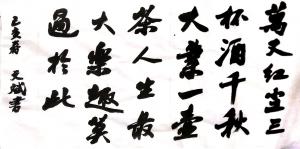 萬丈紅塵三
杯酒千秋
大業一壺
茶人生最
大樂趣莫
過於此
乙亥春
天斌書